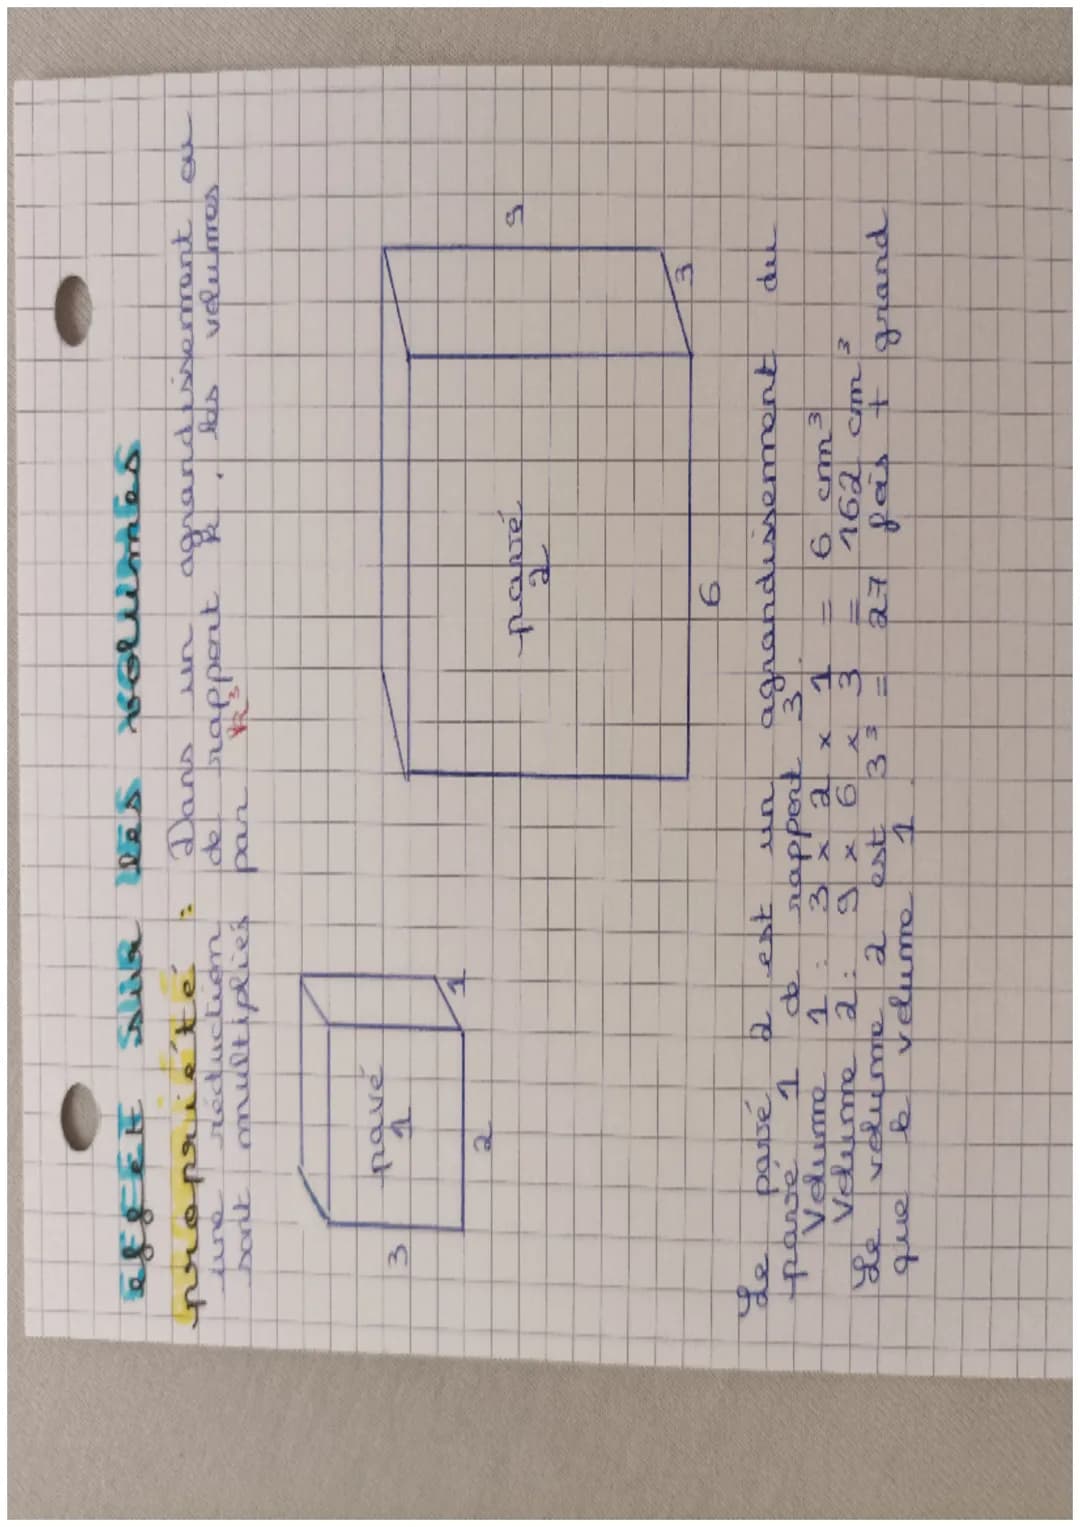 effet sur les volumes
propriété : Dans un agrandissement ou
une réduction de rapport k, les volumes
sont multipliés par k³
pavé
1
3
2
1
pavé
2
9
3
6
Le pavé 2 est un agrandissement du
pavé 1 de rapport 3.
Volume 1 : 3 x 2 x 1 = 6 cm³
Volume 2 : 9 x 6 x 3 = 162 cm³
Le volume 2 est 3³ = 27 fois + grand
que le volume 1.